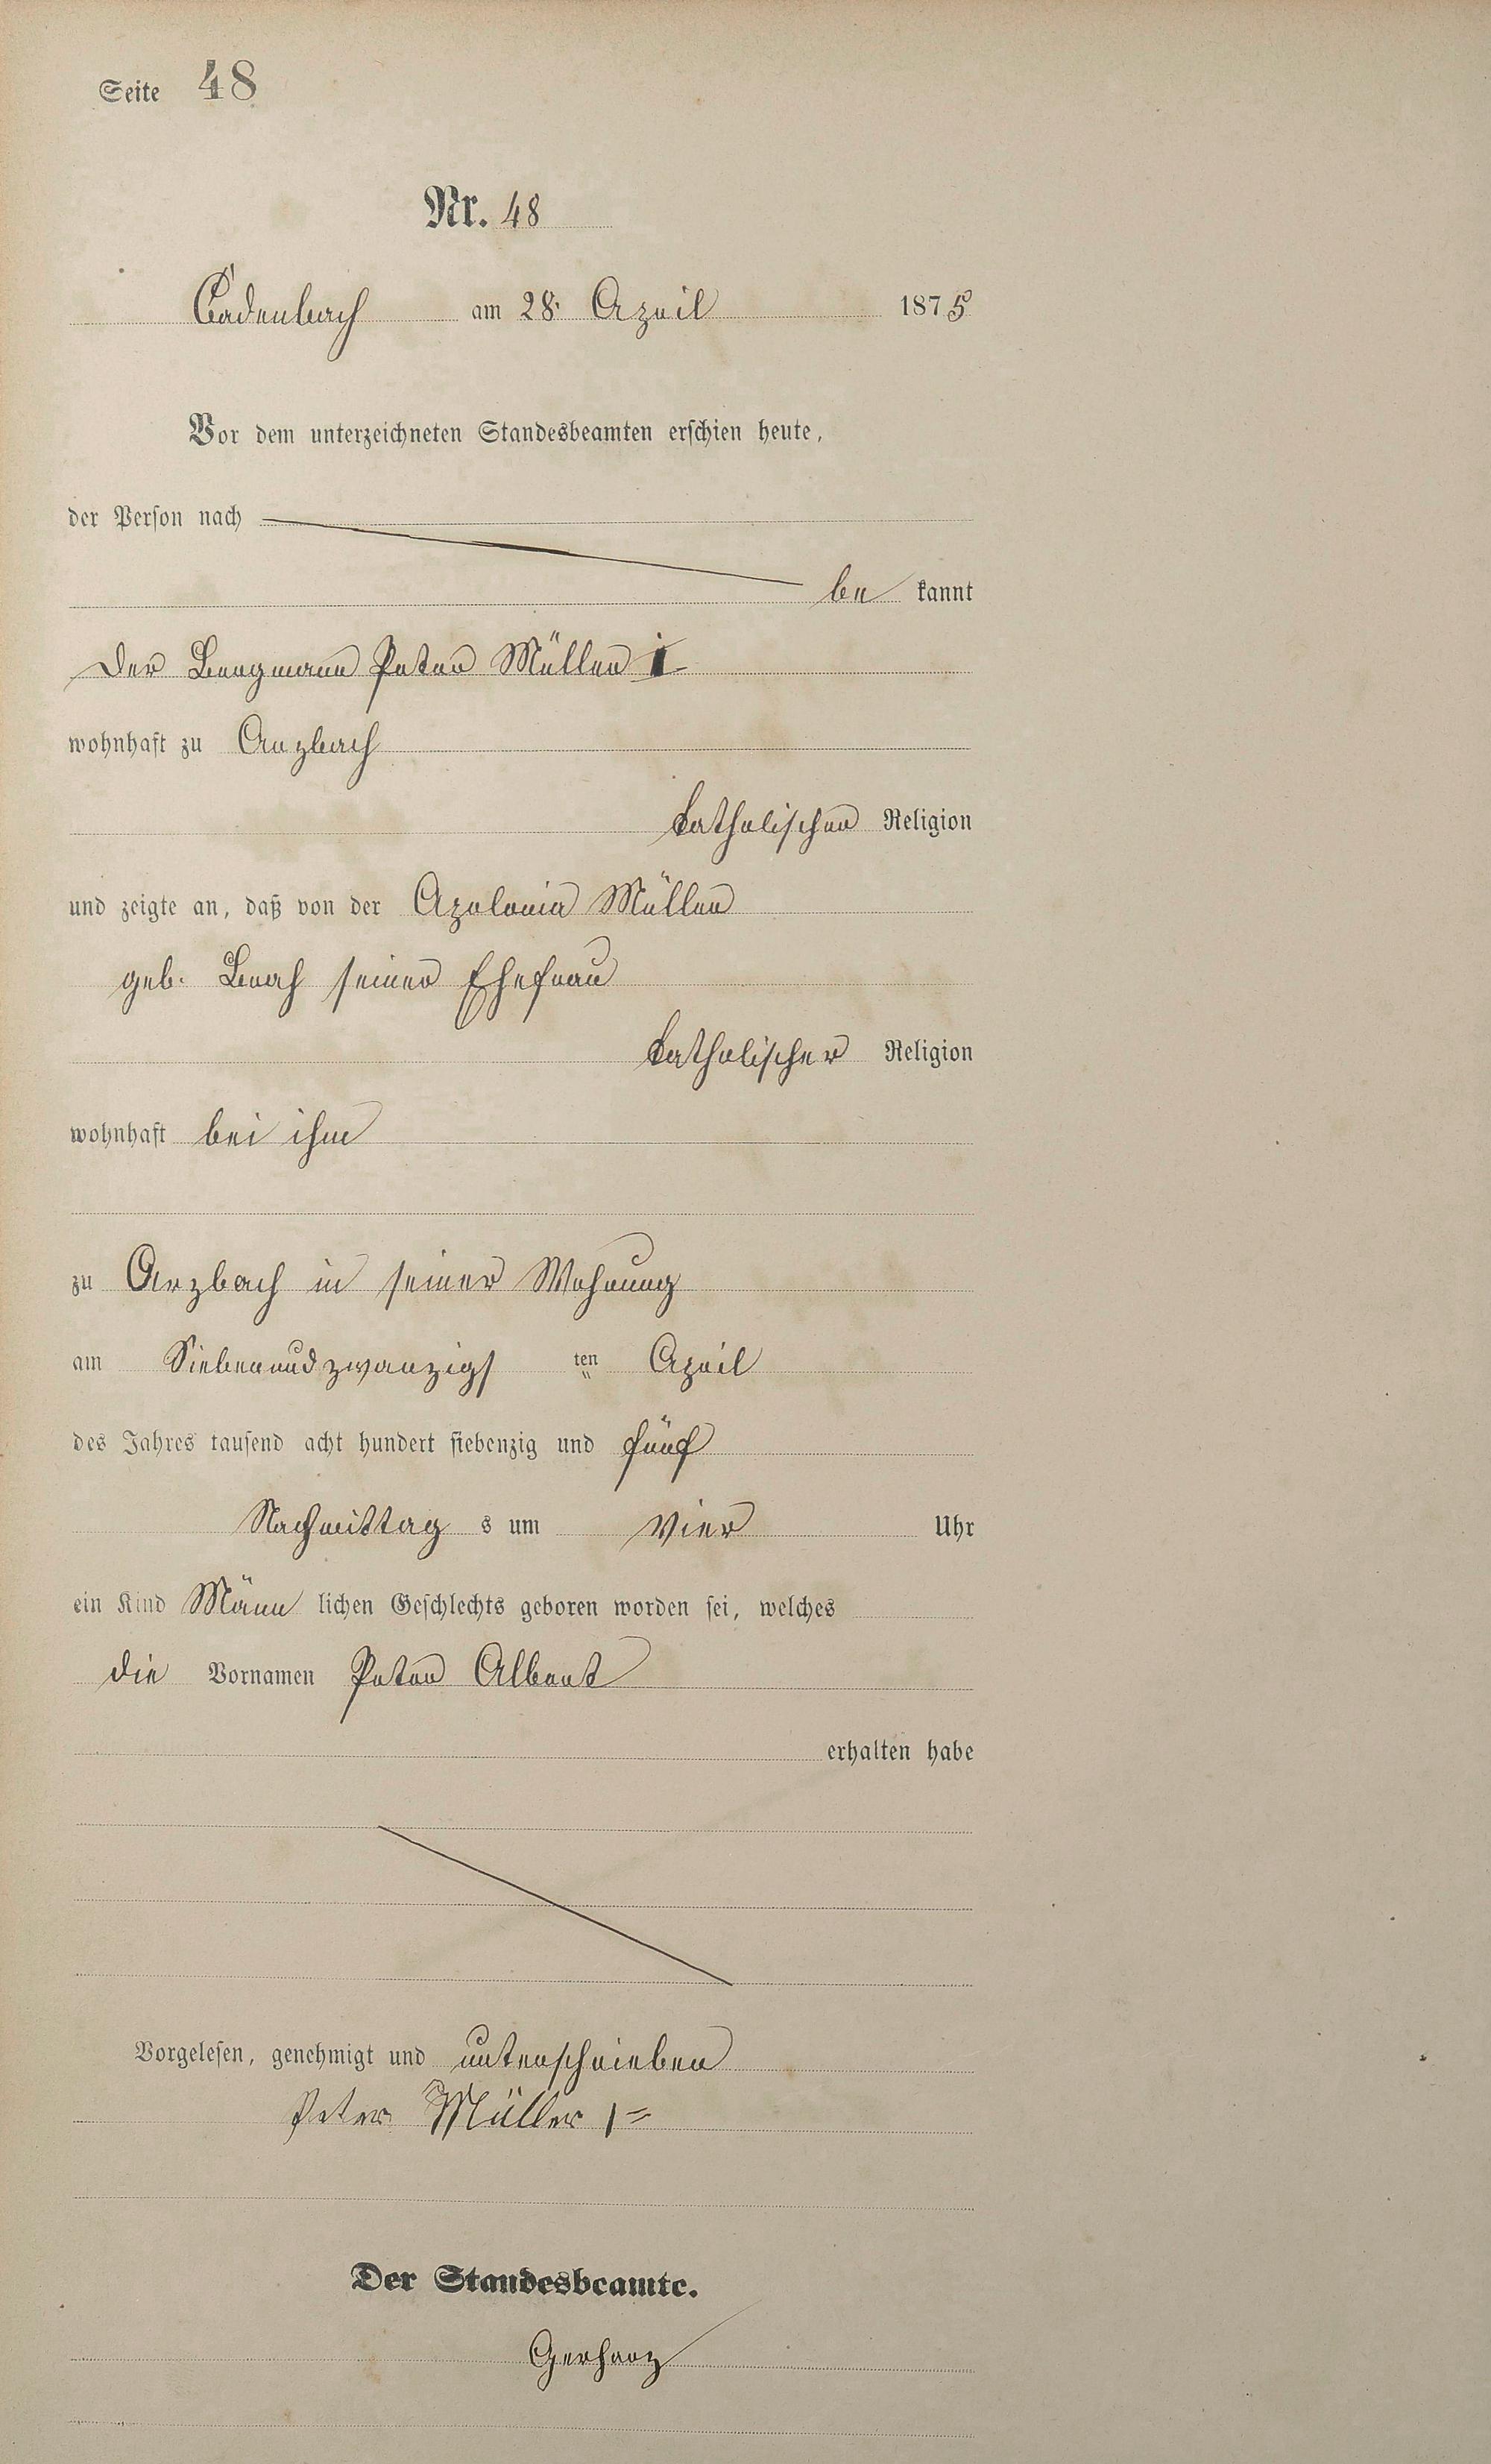 Seite 48
Nr. 48
Cadenbach am 28. April 1875
Vor dem unterzeichneten Standesbeamten erschien heute,
der Person nach
be kannt
Der Bergmann Peter Müller I
wohnhaft zu Arzbach
katholischer Religion
und zeigte an, daß von der Apolonia Müller
geb. Bach seiner Ehefrau
katholischer Religion
wohnhaft bei ihm
zu Arzbach in seiner Wohnung
am Siebenundzwanzigs ten April
des Jahres tausend acht hundert siebenzig und fünf
Nachmittag s um Vier Uhr
ein Kind Männ lichen Geschlechts geboren worden sei, welches
die Vornamen Peter Albert
erhalten habe
Vorgelesen, genehmigt und unterschrieben
Peter Müller 1=
Der Standesbeamte.
Gerharz